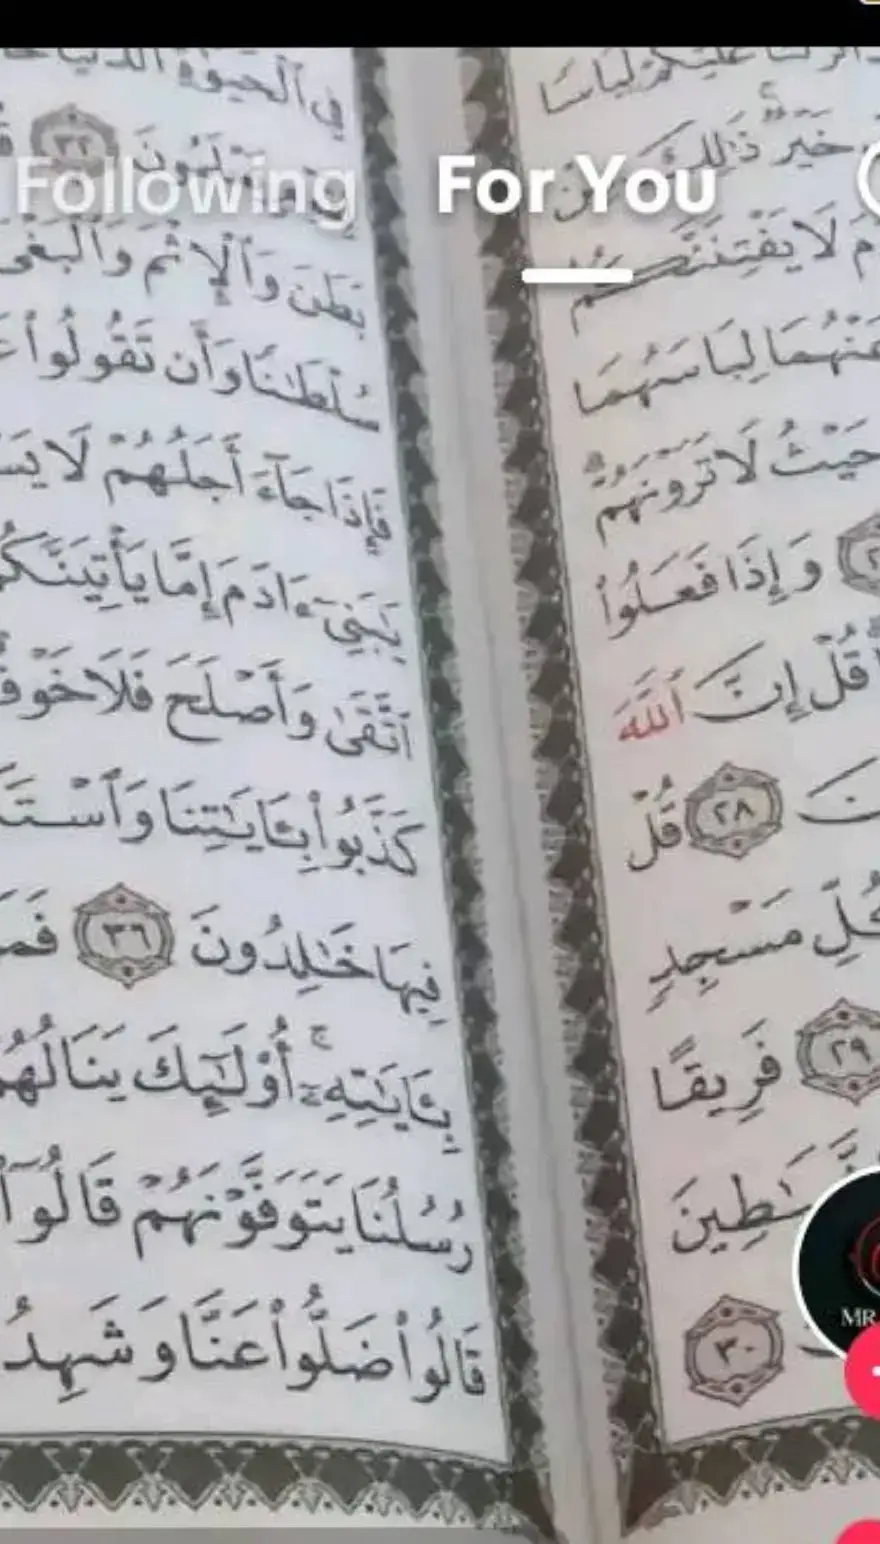 Following For You
عَلَيْكُمْ لِبَاسًا
خَيْرٌ ذَٰلِكَ مِنْ
لَا يَفْتِنَنَّكُمُ
عَنْهُمَا لِبَاسَهُمَا
حَيْثُ لَا تَرَوْنَهُمْ
وَإِذَا فَعَلُوا۟
قُلْ إِنَّ ٱللَّهَ
٢٨ قُلْ
كُلِّ مَسْجِدٍ
٢٩ فَرِيقًا
٣٠
فِى ٱلْحَيَوٰةِ ٱلدُّنْيَا
٣٢
بَطَنَ وَٱلْإِثْمَ وَٱلْبَغْىَ
سُلْطَٰنًا وَأَن تَقُولُوا۟
فَإِذَا جَآءَ أَجَلُهُمْ لَا
يَٰبَنِىٓ ءَادَمَ إِمَّا يَأْتِيَنَّكُمْ
ٱتَّقَىٰ وَأَصْلَحَ فَلَا خَوْفٌ
كَذَّبُوا۟ بِـَٔايَٰتِنَا
فِيهَا خَٰلِدُونَ ٣٦
بِـَٔايَٰتِهِۦٓ ۚ أُو۟لَٰٓئِكَ يَنَالُهُمْ
رُسُلُنَا يَتَوَفَّوْنَهُمْ قَالُوٓا۟
قَالُوا۟ ضَلُّوا۟ عَنَّا
MR